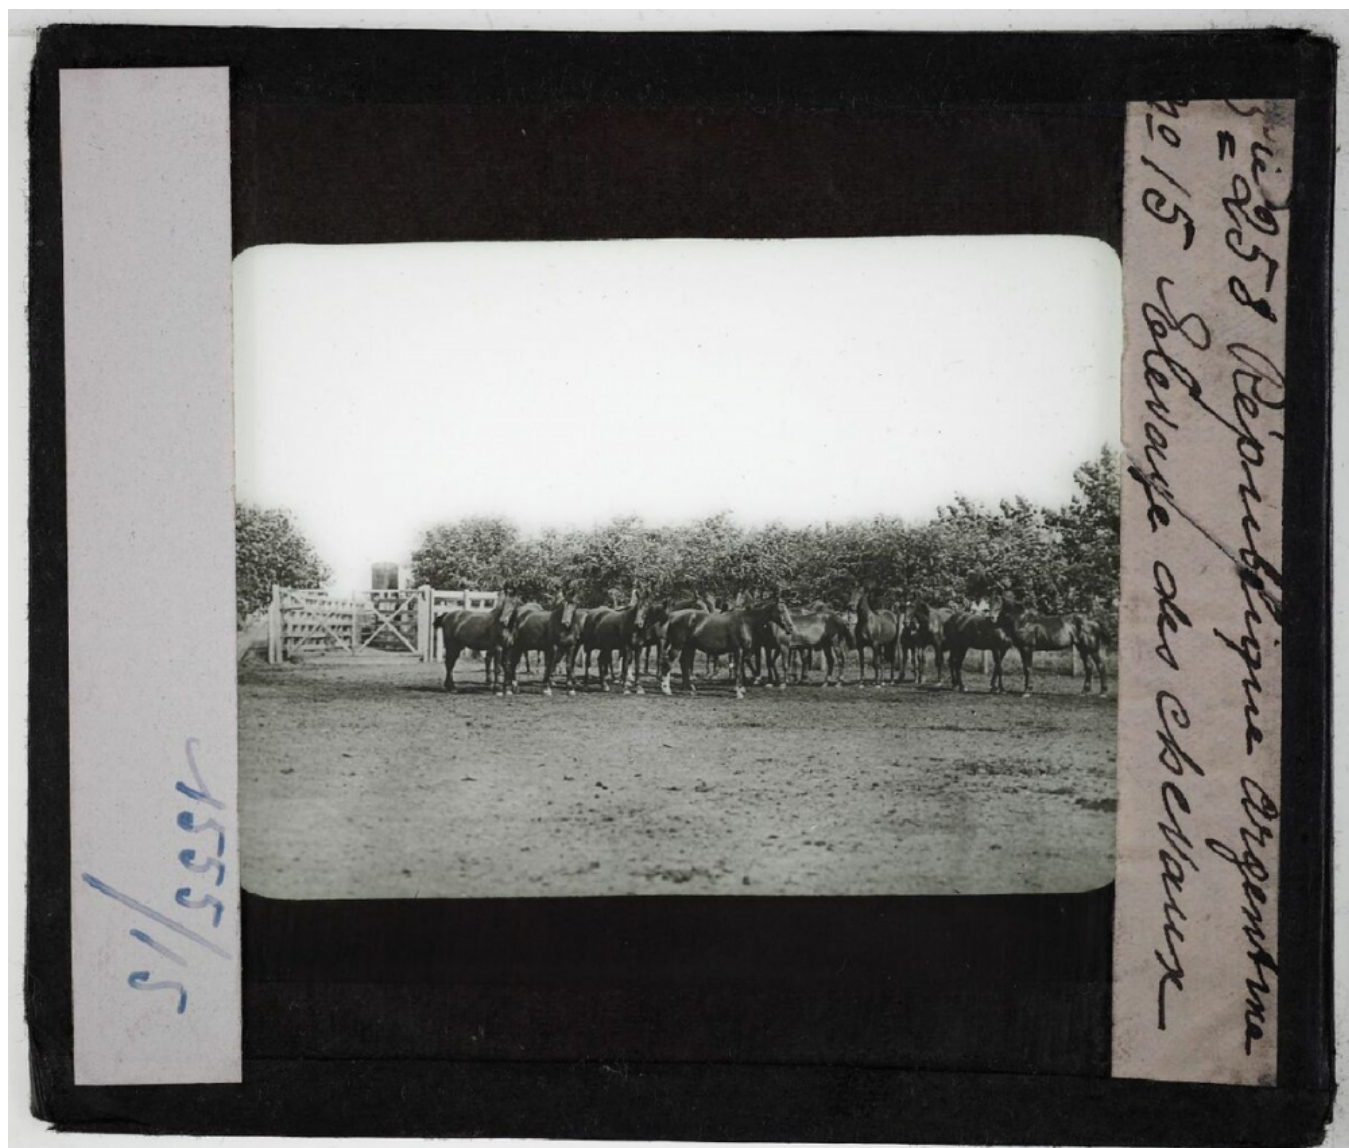 1555/15
258 République Argentine
No 15 Elevage des chevaux